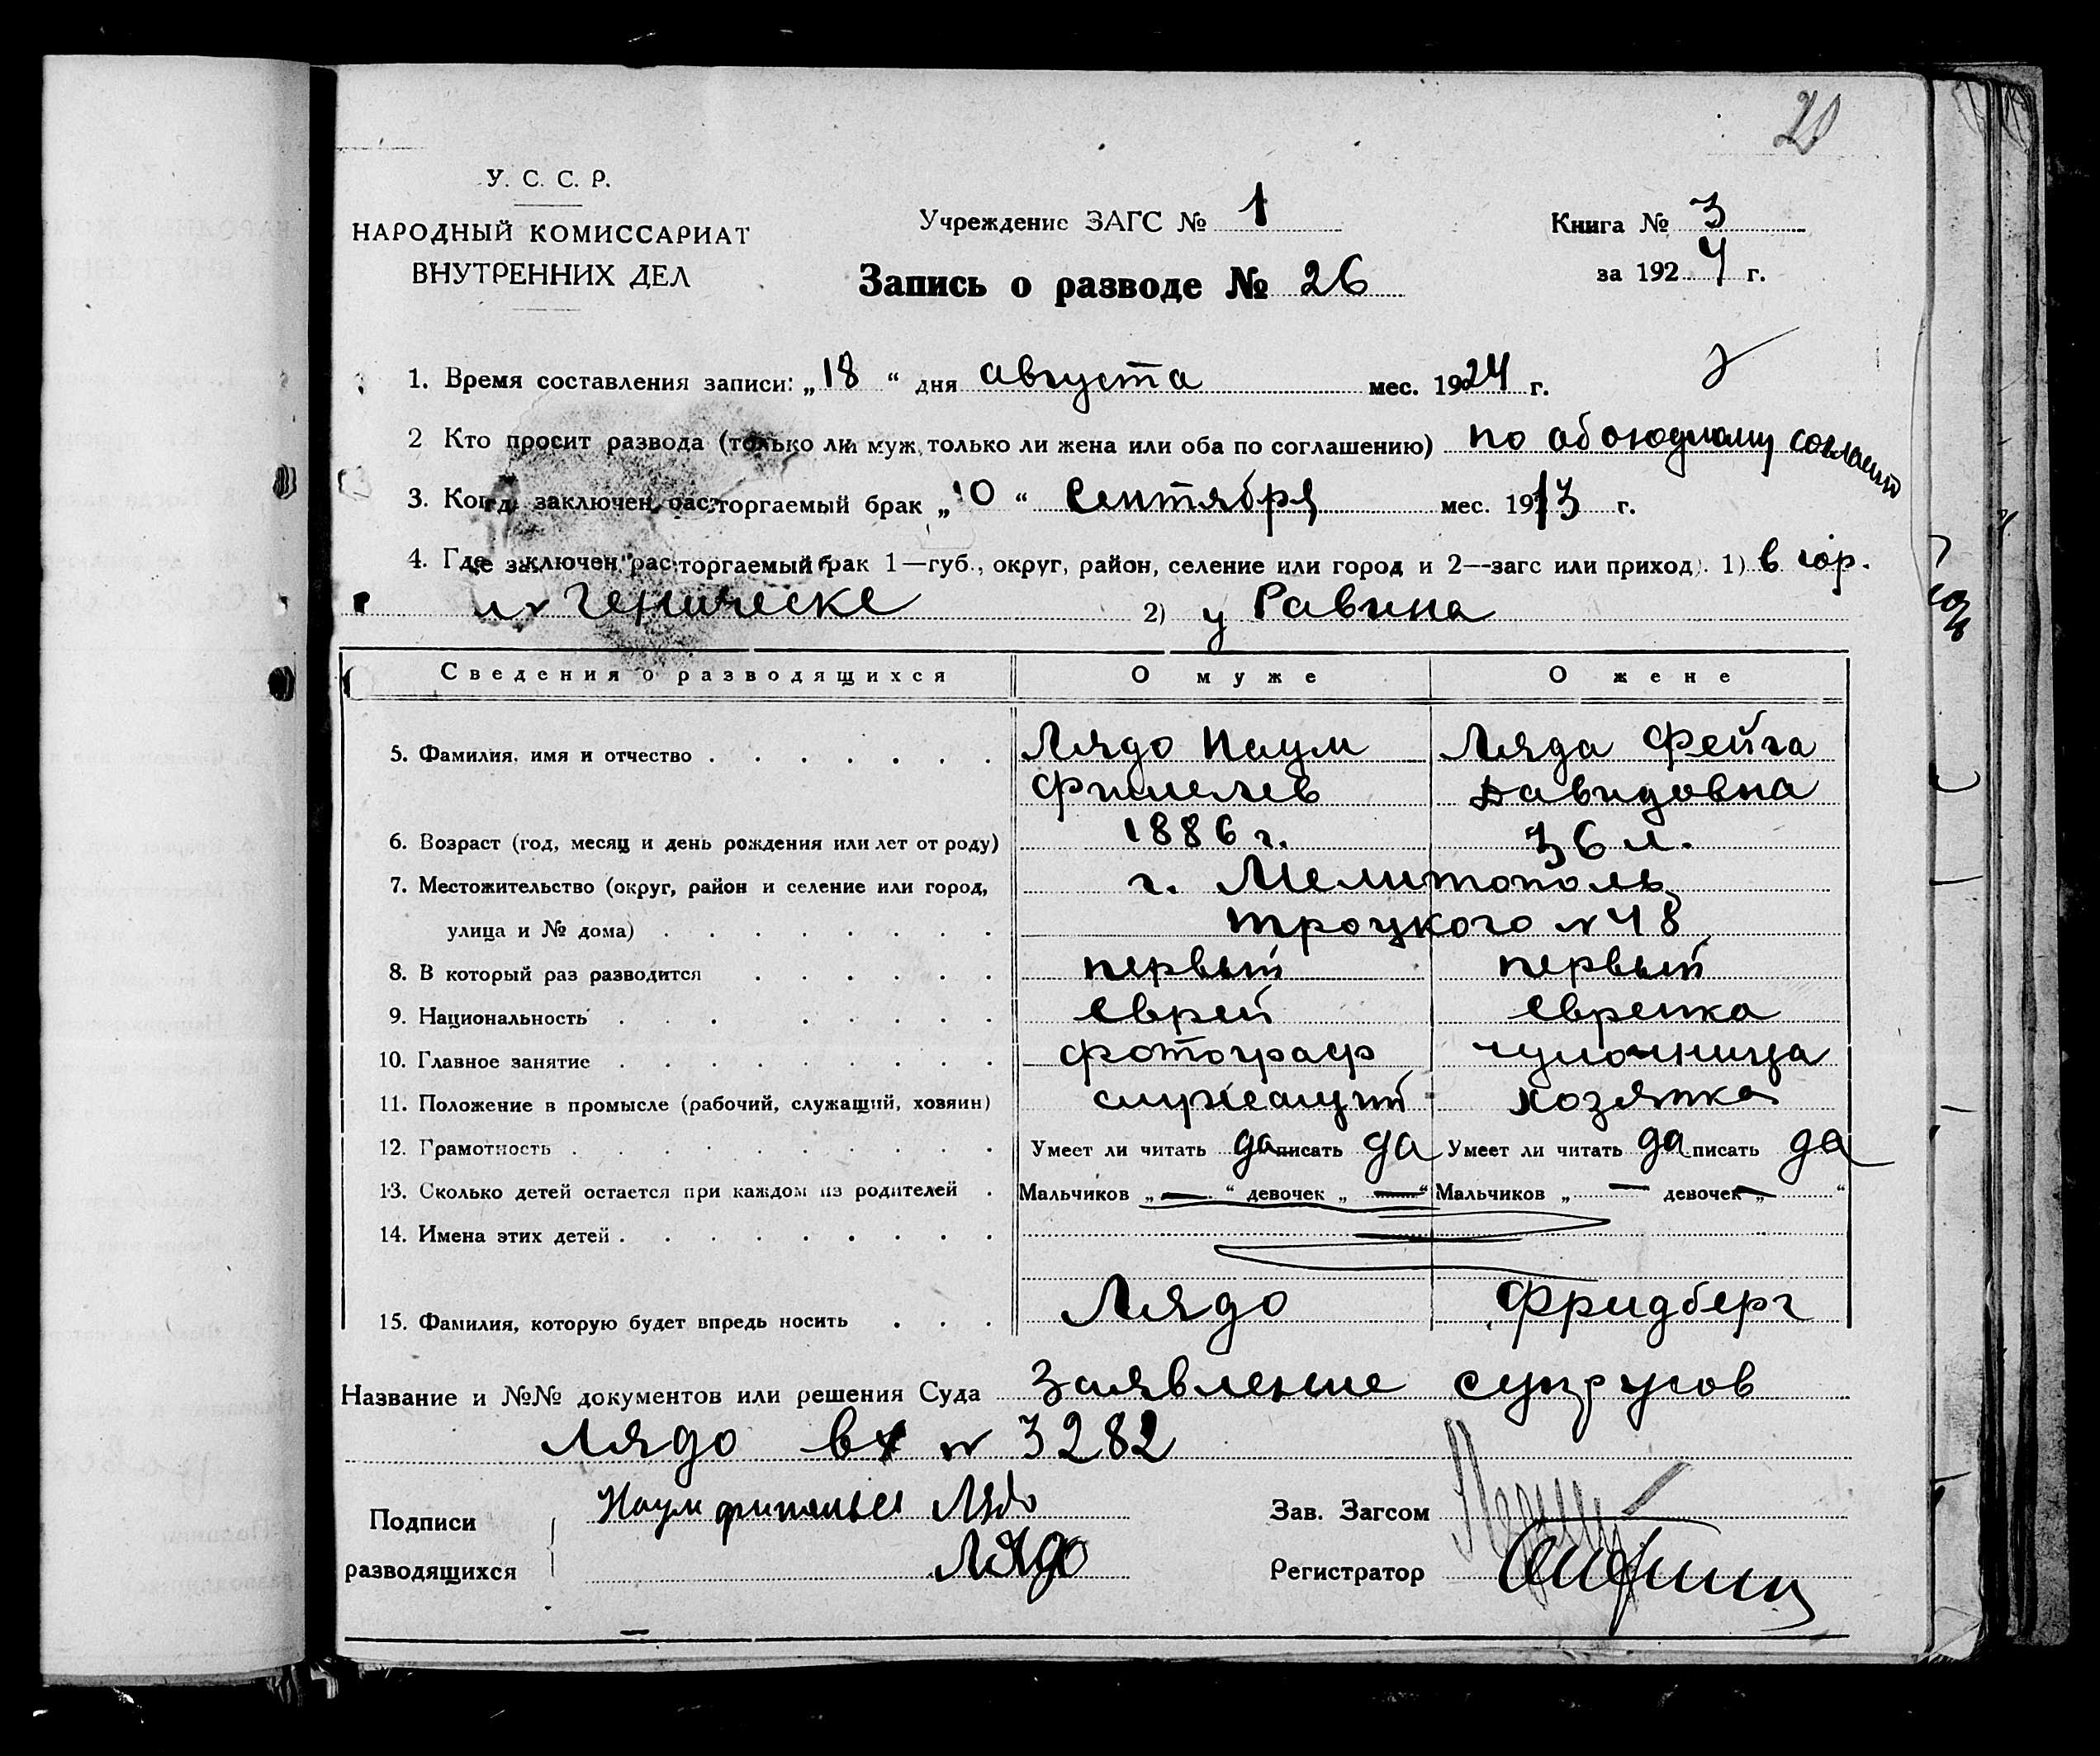 20
У. С. С. Р.
НАРОДНЫЙ КОМИССАРИАТ
ВНУТРЕННИХ ДЕЛ
Учреждение ЗАГС № 1
Запись о разводе № 26
Книга № 3
за 1924 г.
1. Время составления записи: „18“ дня августа мес. 1924 г.
2 Кто просит развода (только ли муж, только ли жена или оба по соглашению) по обоюдному
3. Когда заключен расторгаемый брак „10“ Сентября мес. 1913 г.
4. Где заключен расторгаемый брак 1—губ., округ, район, селение или город и 2—загс или приход). 1) в гор.
Геническе 2) у Равина
Сведения о разводящихся О муже О жене
5. Фамилия, имя и отчество Лядо Наум Ляда Фейга
Фишелев Давидовна
6. Возраст (год, месяц и день рождения или лет от роду) 1886 г. 36 л.
7. Местожительство (округ, район и селение или город, г. Мелитополь
улица и № дома) Троцкого N 48
8. В который раз разводится первый первый
9. Национальность еврей еврейка
10. Главное занятие фотограф чулочница
11. Положение в промысле (рабочий, служащий, хозяин) служащий хозяйка
12. Грамотность Умеет ли читать да писать да Умеет ли читать да писать да
13. Сколько детей остается при каждом из родителей Мальчиков „—“ девочек „—“ Мальчиков „— девочек „—“
14. Имена этих детей
15. Фамилия, которую будет впредь носить Лядо Фридберг
Название и №№ документов или решения Суда Заявление супругов
Лядо вх N 3282
Подписи Наум Лядо Зав. Загсом
разводящихся Лядо Регистратор